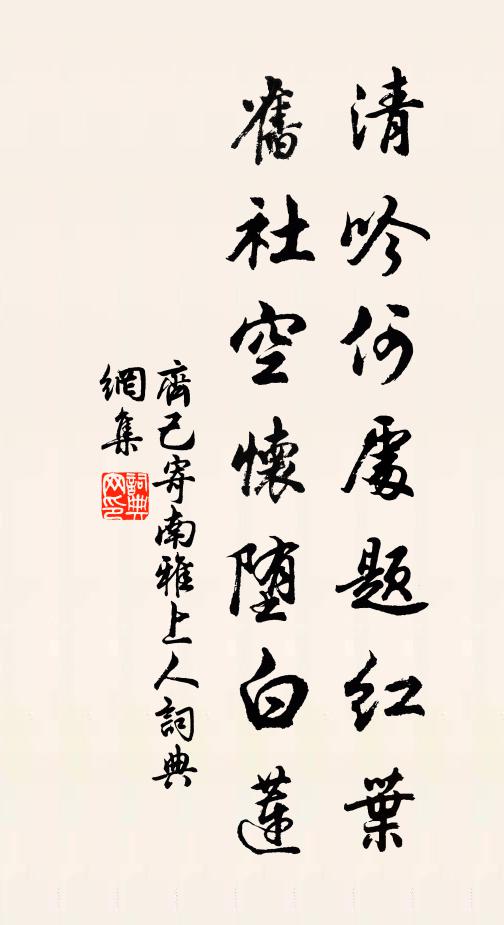 清吟何處題紅葉
舊社空懷墮白蓮
齊己寄南雅上人詞典
網集
詞典
网印